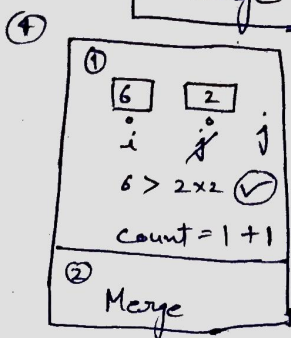 ④
①
6 2
i j j
6 > 2x2 ✓
Count = 1 + 1
②
Merge